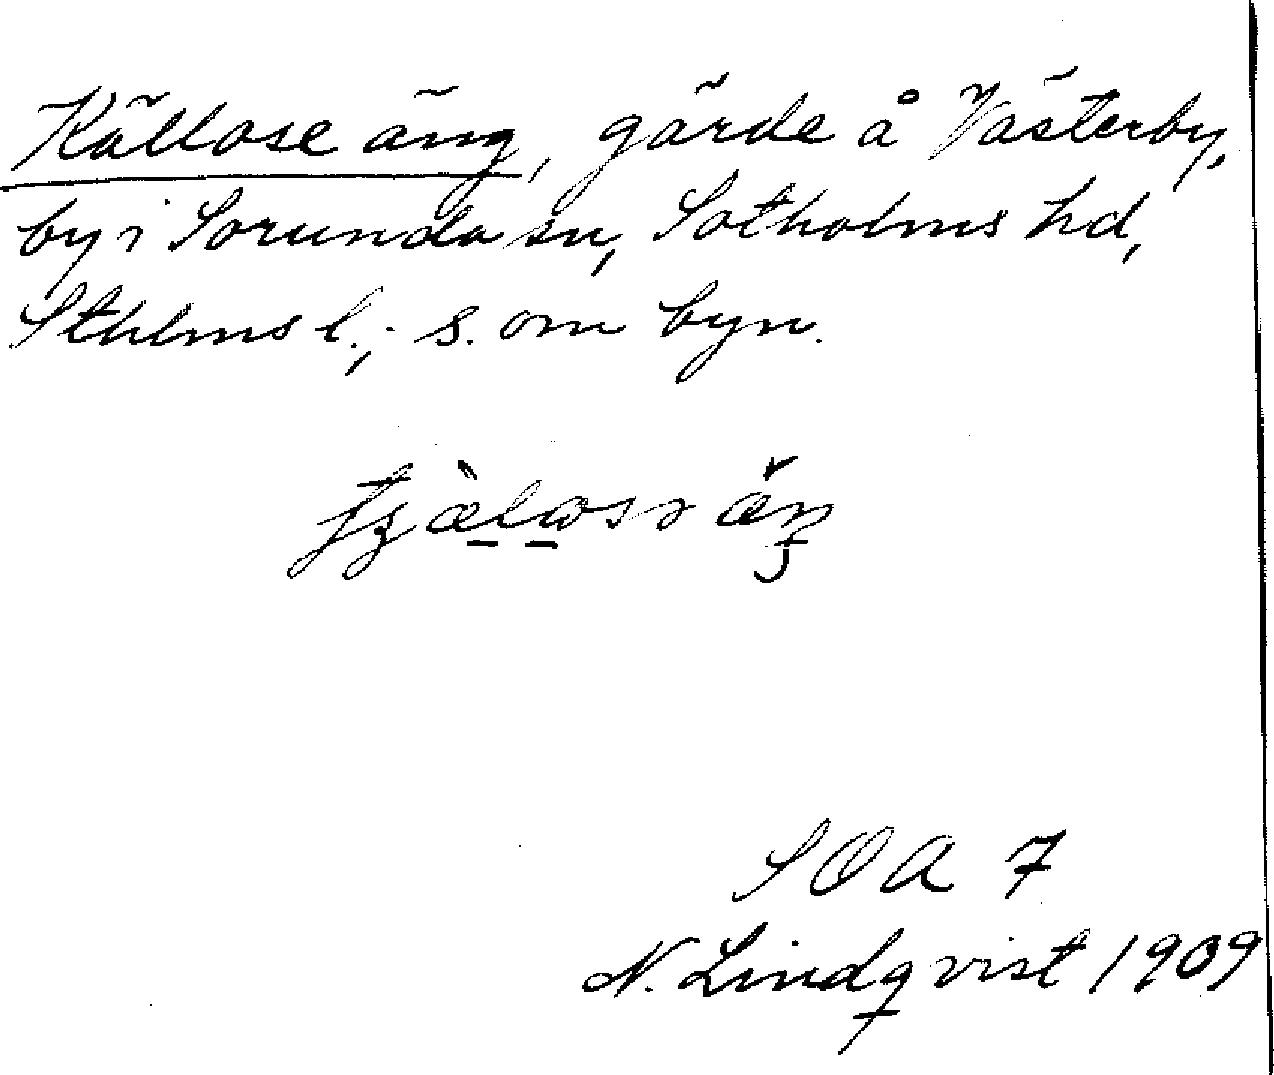 Källose äng, gärde å Västerby,
by i Sorunda sn, Sotholms hd,
Sthlms l.; s. om byn.
SOA 7
N. Lindqvist 1909